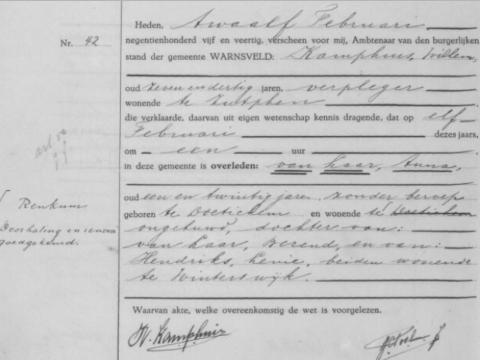 Nr. 42
Heden, Twaalf Februari
negentienhonderd vijf en veertig, verscheen voor mij, Ambtenaar van den burgerlijken
stand der gemeente WARNSVELD: Kamphuis, Willem,
oud zeven en dertig jaren, verpleger
wonende te Zutphen
die verklaarde, daarvan uit eigen wetenschap kennis dragende, dat op elf
Februari dezes jaars,
om een uur
in deze gemeente is overleden: van Haar, Anna,
oud een en twintig jaren, zonder beroep
geboren te Doetichem en wonende te Doetichem
ongehuwd, dochter van:
van Haar, Berend, en van:
Hendriks, Lenie, beiden wonende
te Winterswijk.
Renkum
Doorhaling en renvooi
goedgekeurd.
Waarvan akte, welke overeenkomstig de wet is voorgelezen.
W. Kamphuis